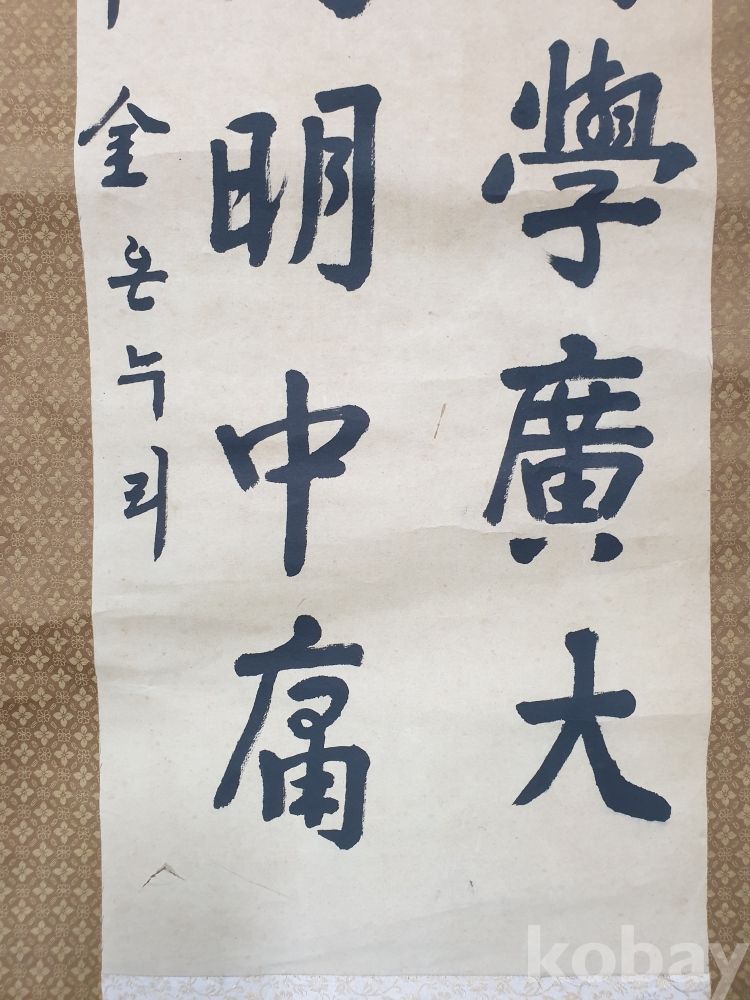 學廣大
明中庸
金온누리
kobay